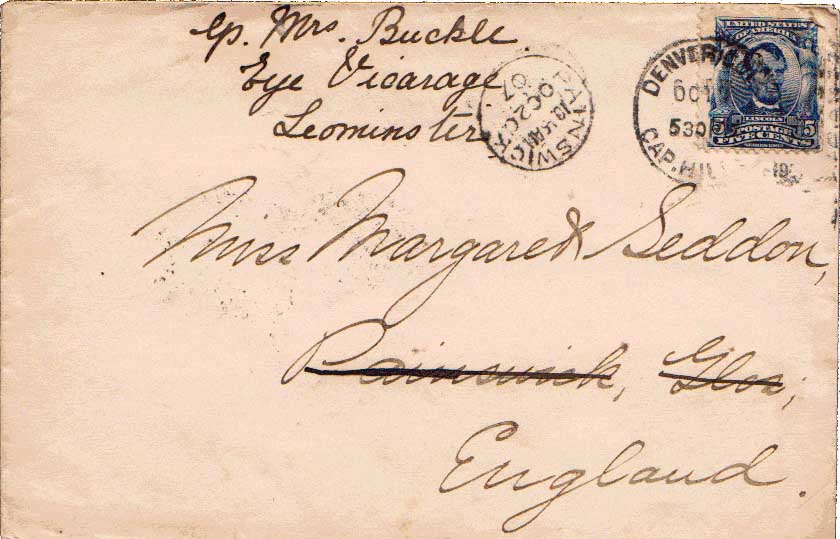 c/o. Mrs. Buckle
Eye Vicarage
Leominster
PAINSWICK
OC 20
07
DENVER
OCT
530
CAP. HILL
UNITED STATES
OF AMERICA
LINCOLN
POSTAGE
5 5
FIVE CENTS
Miss Margaret Seddon,
Painswick, Glos,
England.